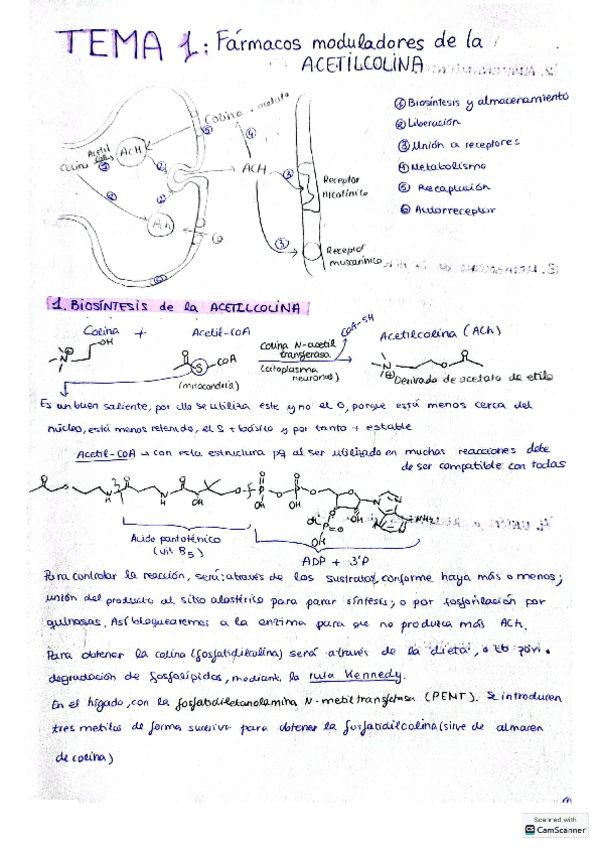 TEMA 1: Fármacos moduladores de la
ACETILCOLINA
① Biosíntesis y almacenamiento
② Liberación
③ Unión a receptores
④ Metabolismo
⑤ Recaptación
⑥ Autorreceptor
Colina + acetato
⑤
④
Colina
Acetil
CoA
①
ACH
②
ACH
③
Receptor
nicotínico
ACh
⑥
③
Receptor
muscarínico
1. BIOSÍNTESIS de la ACETILCOLINA
Colina + Acetil-CoA
Colina N-acetil
transferasa
(citoplasma
neuronas)
CoA-SH
Acetilcolina (ACh)
N
OH
S CoA
(mitocondria)
N
O
Derivado de acetato de etilo
Es un buen saliente, por ello se utiliza este y no el O, porque está menos cerca del
núcleo, está menos retenido, el S + básico y por tanto + estable
Acetil-CoA → con esta estructura pq al ser utilizado en muchas reacciones debe
de ser compatible con todas
Ácido pantoténico
(vit B5)
ADP + 3'P
Para controlar la reacción, será: a través de los sustratos, conforme haya más o menos;
unión del producto al sitio alostérico para parar síntesis; o por fosforilación por
quinasas. Así bloquearemos a la enzima para que no produzca más ACh.
Para obtener la colina (fosfatidilcolina) será a través de la dieta, o
degradación de fosfolípidos, mediante la ruta Kennedy.
En el hígado, con la fosfatidiletanolamina N-metiltransferasa (PENT). Se introducen
tres metilos de forma sucesiva para obtener la fosfatidilcolina (sirve de almacen
de colina)
Scanned with
CamScanner